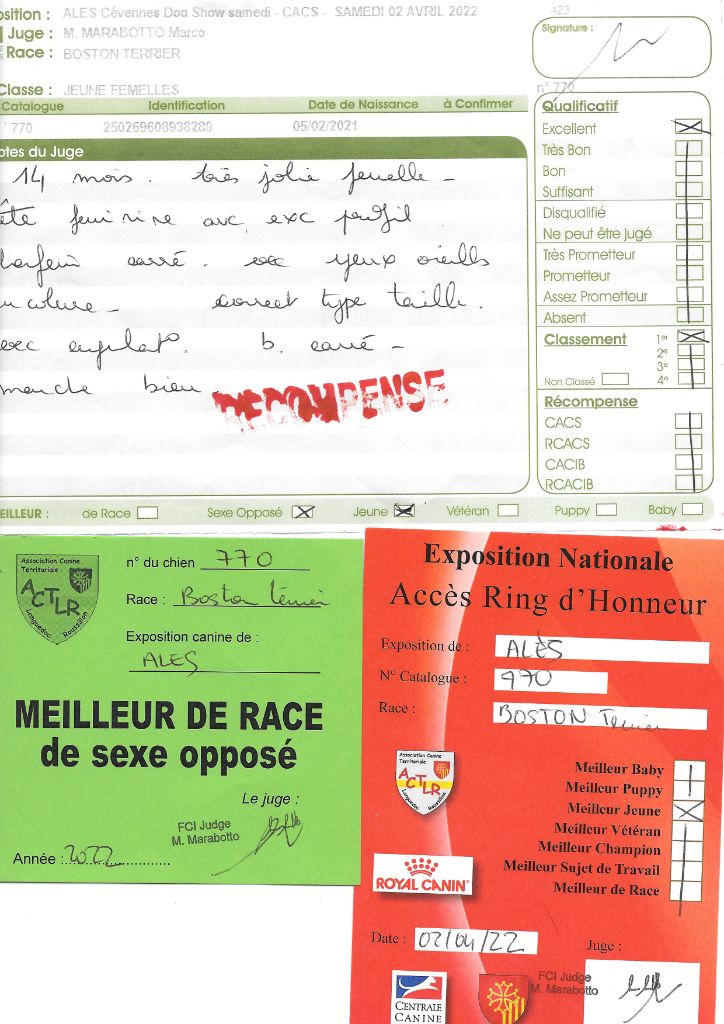 osition : ALES Cévennes Dog Show samedi - CACS - SAMEDI 02 AVRIL 2022
423
Juge : M. MARABOTTO Marco
Race : BOSTON TERRIER
Signature :
Classe : JEUNE FEMELLES
n° 770
Catalogue Identification Date de Naissance à Confirmer
770 250269608938289 05/02/2021
otes du Juge
14 mois. très jolie femelle -
ête feminine avc exc profil
carré. avc yeux
correct type taille.
b. carré -
bien.
RECOMPENSE
Qualificatif
Excellent
Très Bon
Bon
Suffisant
Disqualifié
Ne peut être jugé
Très Prometteur
Prometteur
Assez Prometteur
Absent
Classement 1er
2e
3e
Non Classé 4e
Récompense
CACS
RCACS
CACIB
RCACIB
EILLEUR : de Race Sexe Opposé Jeune Vétéran Puppy Baby
Association Canine
Territoriale
ACTLR
Languedoc Roussillon
n° du chien 770
Race : Boston terrier
Exposition canine de :
ALES
MEILLEUR DE RACE
de sexe opposé
Le juge :
FCI Judge
M. Marabotto
Année : 2022
Exposition Nationale
Accès Ring d'Honneur
Exposition de : ALÈS
N° Catalogue : 770
Race : BOSTON Terrier
Association Canine
Territoriale
ACTLR
Languedoc Roussillon
Meilleur Baby
Meilleur Puppy
Meilleur Jeune
Meilleur Vétéran
Meilleur Champion
Meilleur Sujet de Travail
Meilleur de Race
ROYAL CANIN
Date : 02/04/22
Juge :
FCI Judge
M. Marabotto
CENTRALE
CANINE